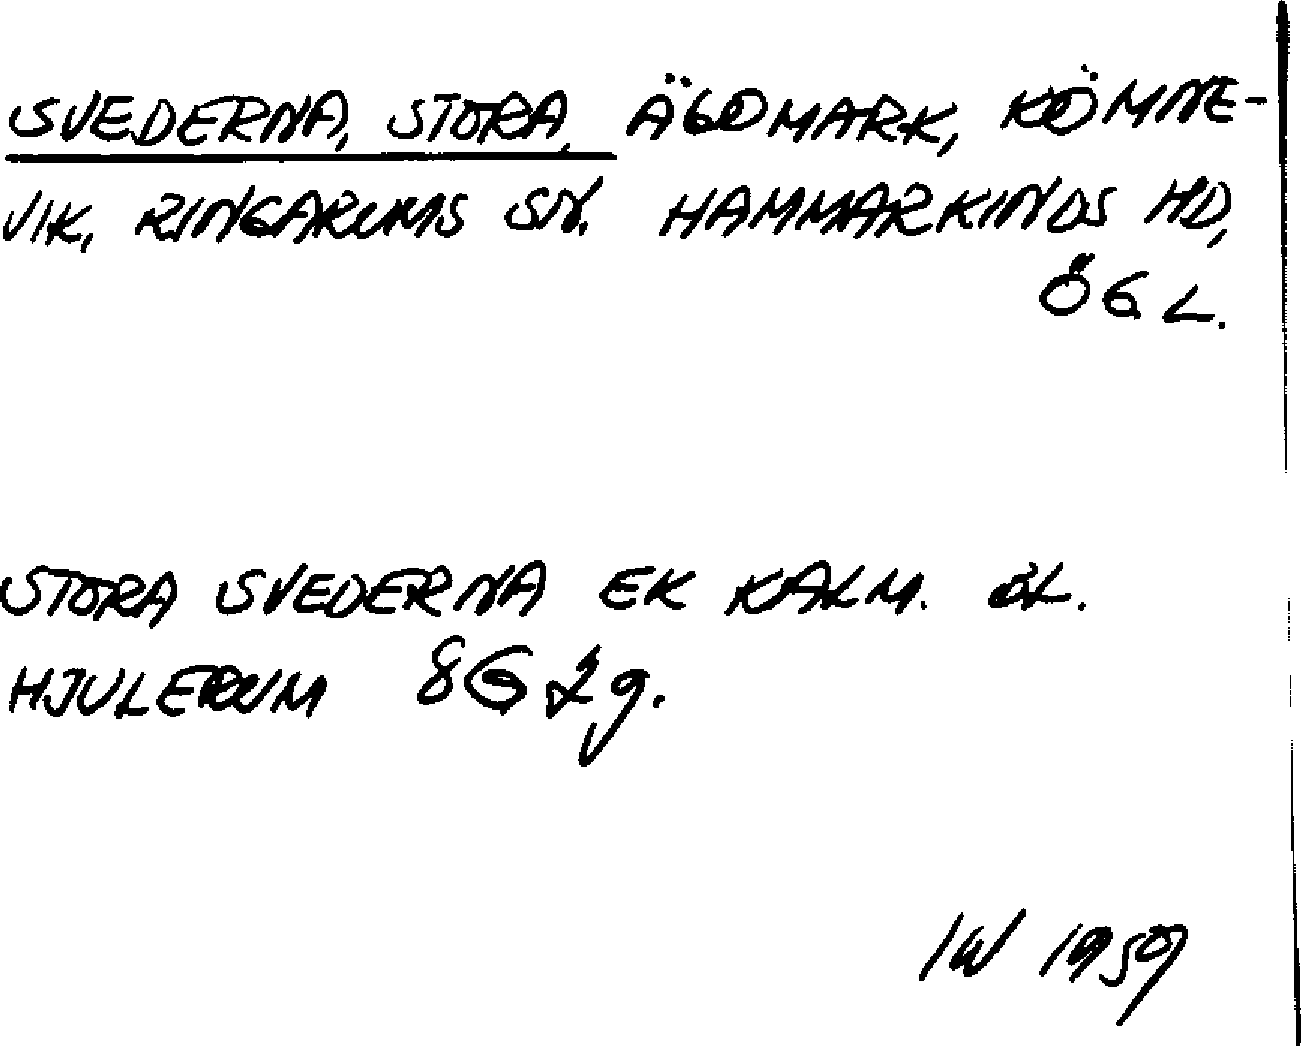 SVEDERNA, STORA, ÄGOMARK, KÖMNE-
VIK, RINGARUMS SN. HAMMARKINDS HD,
ÖGL.
STORA SVEDERNA EK KALM. ÖL.
HJULERUM 8G2g.
IW 1959